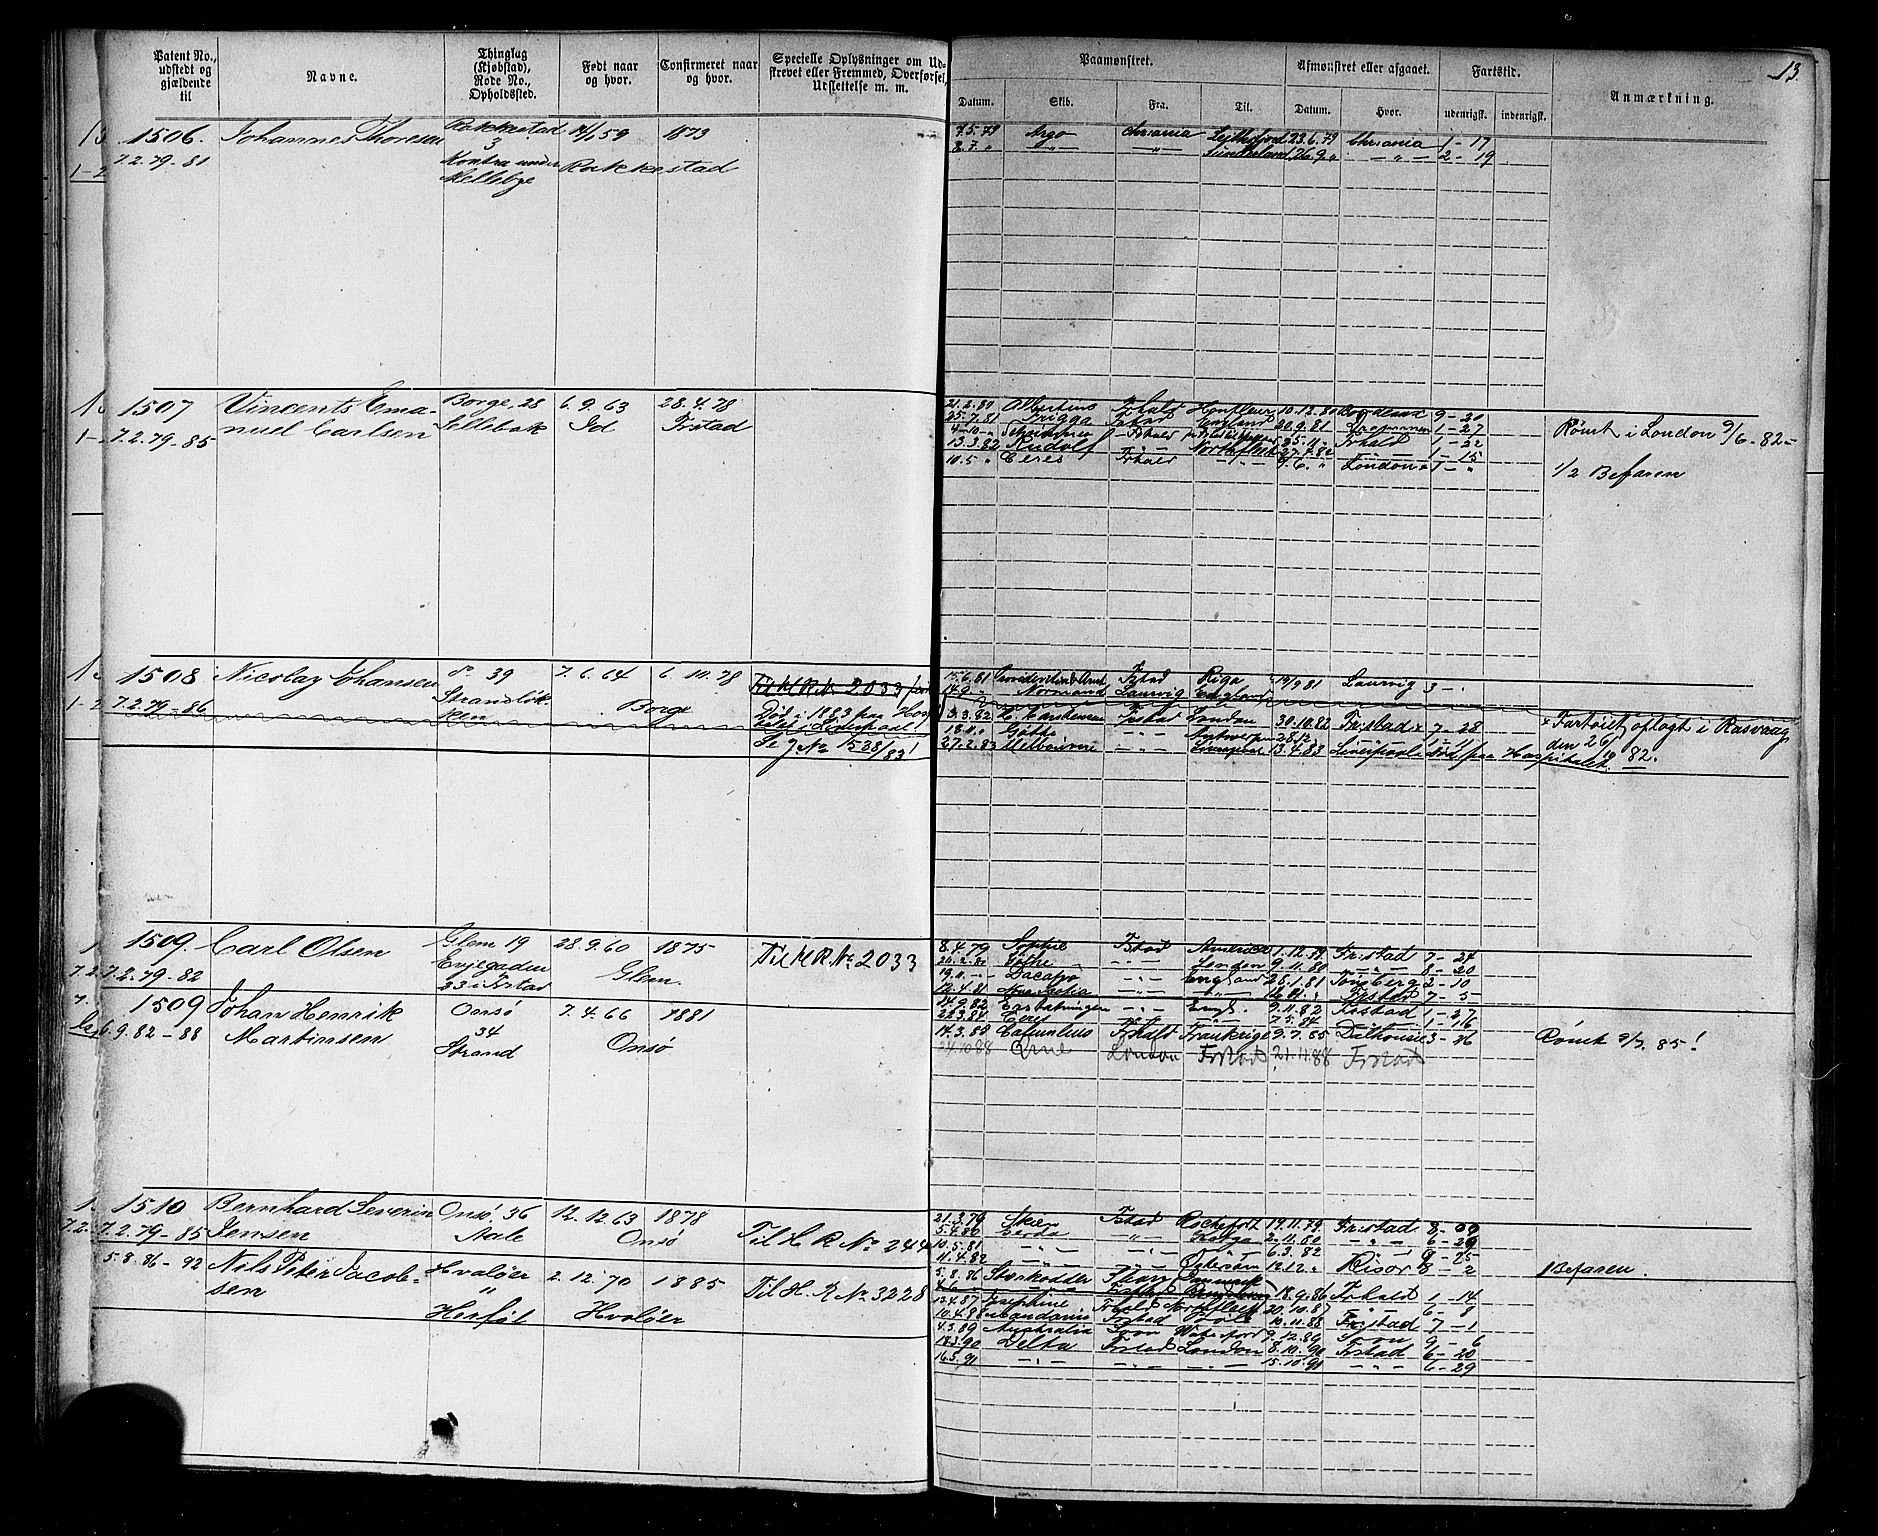 13.
Patent No., udstedt og gjældende til
Navne.
Thinglag (Kjøbstad), Rode No., Opholdssted.
Født naar og hvor.
Confirmeret naar og hvor.
Specielle Oplysninger om Udskrevet eller Fremmed, Overførsel, Udslettelse m. m.
Paamønstret.
Datum. Skib. Fra. Til.
Afmønstret eller afgaaet.
Datum. Hvor.
Fartstid.
udenrigsk. indenrigsk.
Anmærkning.
1506. Johannes Thoresen Rakkestad 14/1 59 1873
3
7.2.79-81 under Rakkestad
Mellebye
7.5.79 Argo Chr:ania 23.6.79 Chr:ania 1-17
8.7. „ -„- -„- Sunderland 26.9. „ -„- 2-19
1507 Vincents Ema- Borge, 28 6.9.63 28.4.78
7.2.79-85 nuel Carlsen Sellebak Id Frstad
21.2.80 Albertine Frhald Honfleur 10.12.80 Bordeaux 9-20
25.7.81 Frigga Frstad England 20.9.81 Drammen 1-27
25.11. Frhald 1-22
13.3.82 Rudolf Northfleet 27.4.82 1-15
10.5 „ Ceres Frhald 9.6. „ London 1-„
Rømt i London 9/6-82-
1/2 Befaren
1508 Nicolay Johansen do 39 7.6.64 6.10.78 Til H. R. No 2033
7.2.79-86 Strandlök- Borge Död i 1883 paa Hos-
ken pital i Liverpool!
Se J No 1528/83!
15.6.81 Frstad Riga 14/9 81 Laurvig 3-„
14.9 „ Normand Laurvig England
3.3.82 Frstad London 30.10.82 Fr:stad x 7-28
18.11. Göthe -„- Antwerpen 28.12.
27.2.83 Melbourne -„- Liverpool 13.4.83 Liverpool död paa Hospitalet.
x Fartöiet oplagt i Rasvaag
den 26/10 82.
1509. Carl Olsen Glem 19 28.9.60 1875 Til H R. No 2033
7.2.79-82 Evjegaden Glem.
23 i Frstad
8.4.79 Sophie Frstad America 1.12.79 Fr:stad 7-24
Göthe -„- London 9.11.80 -„- 8-20
19.11. - Dacapo -„- England 26.1.81 Tönsberg 2-10
12.4.81 -„- -„- Frstad 7-5
1509 Johan Henrik Onsö 7.4.66 1881
6.9.82-88 Martinsen 34 Onsö
Strand
14.9.82 -„- Engl. 9.11.82 Frstad 1-27
22.3.84 Ceres -„- 7.5.84 -„- 1-16
14.3.85 Frhald Frankrige 9.7.85 Dalhousie 3-26
88 Örnen London Frstad 21.4.88 Frstad
Rømt 9/7. 85!
1510 Bernhard Severin Onsö, 36 12.12.63 1878
7.2.79-85 Jensen Aale Onsö Til H R No 244
21.3.79 Skien Frstad Rochefort 19.11.79 Fr:stad 8-„
5.4.80 Gerda -„- 2.11.80 -„- 6-29
10.5.81 -„- -„- 6.3.82 -„- 9-25
11.4.82 -„- -„- 12.12. „ Risör 8-2
1/2 Befaren.
5.8.86-92 Nils Peter Jacob- Hvalöer 2.12.70 1885 Til H. R No 3228
sen „ Hvalöer
Herföl
5.8.86 Storkodder Danmark 18.9.86 Frhald 1-14
13.4.87 Josephine Frhald Northfleet 20.10.87 -„- 6-8
10.4.88 Frstad Hull 10.11.88 Frstad 7-1
4.3.89 Australia Svon Waterford 9.12.89 Svon 9-6
14.3.90 Delta Frstad London 8.10.90 Frstad 6-20
16.3.91 -„- -„- -„- 15.10.91 -„- 6-29